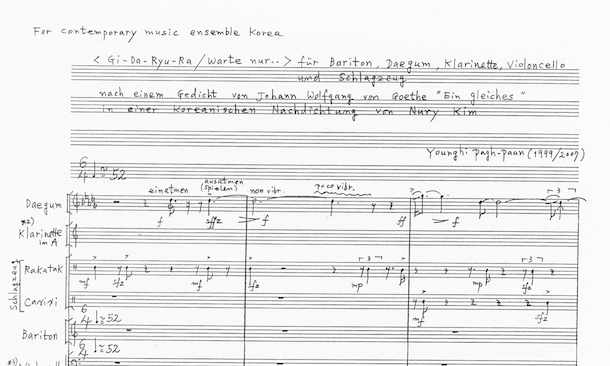 For contemporary music ensemble Korea
< Gi-Da-Ryu-Ra / Warte nur.. > für Bariton, Daegum, Klarinette, Violoncello
und Schlagzeug
nach einem Gedicht von Johann Wolfgang von Goethe "Ein gleiches"
in einer Koreanischen Nachdichtung von Nury Kim
Younghi Pagh-Paan (1999/2007)
6/4 ♩≈52
ausatmen
einatmen (spielen) non vibr. poco vibr. 3
Daegum
f sffz f sff f
*2)
Klarinette
im A
Schlagzeug
Rakatak 3 3
mf sfz mf sfz mp mp
Caxixi
mf sfz
6/4 ♩≈52
Bariton
6/4 ♩≈52
*3)